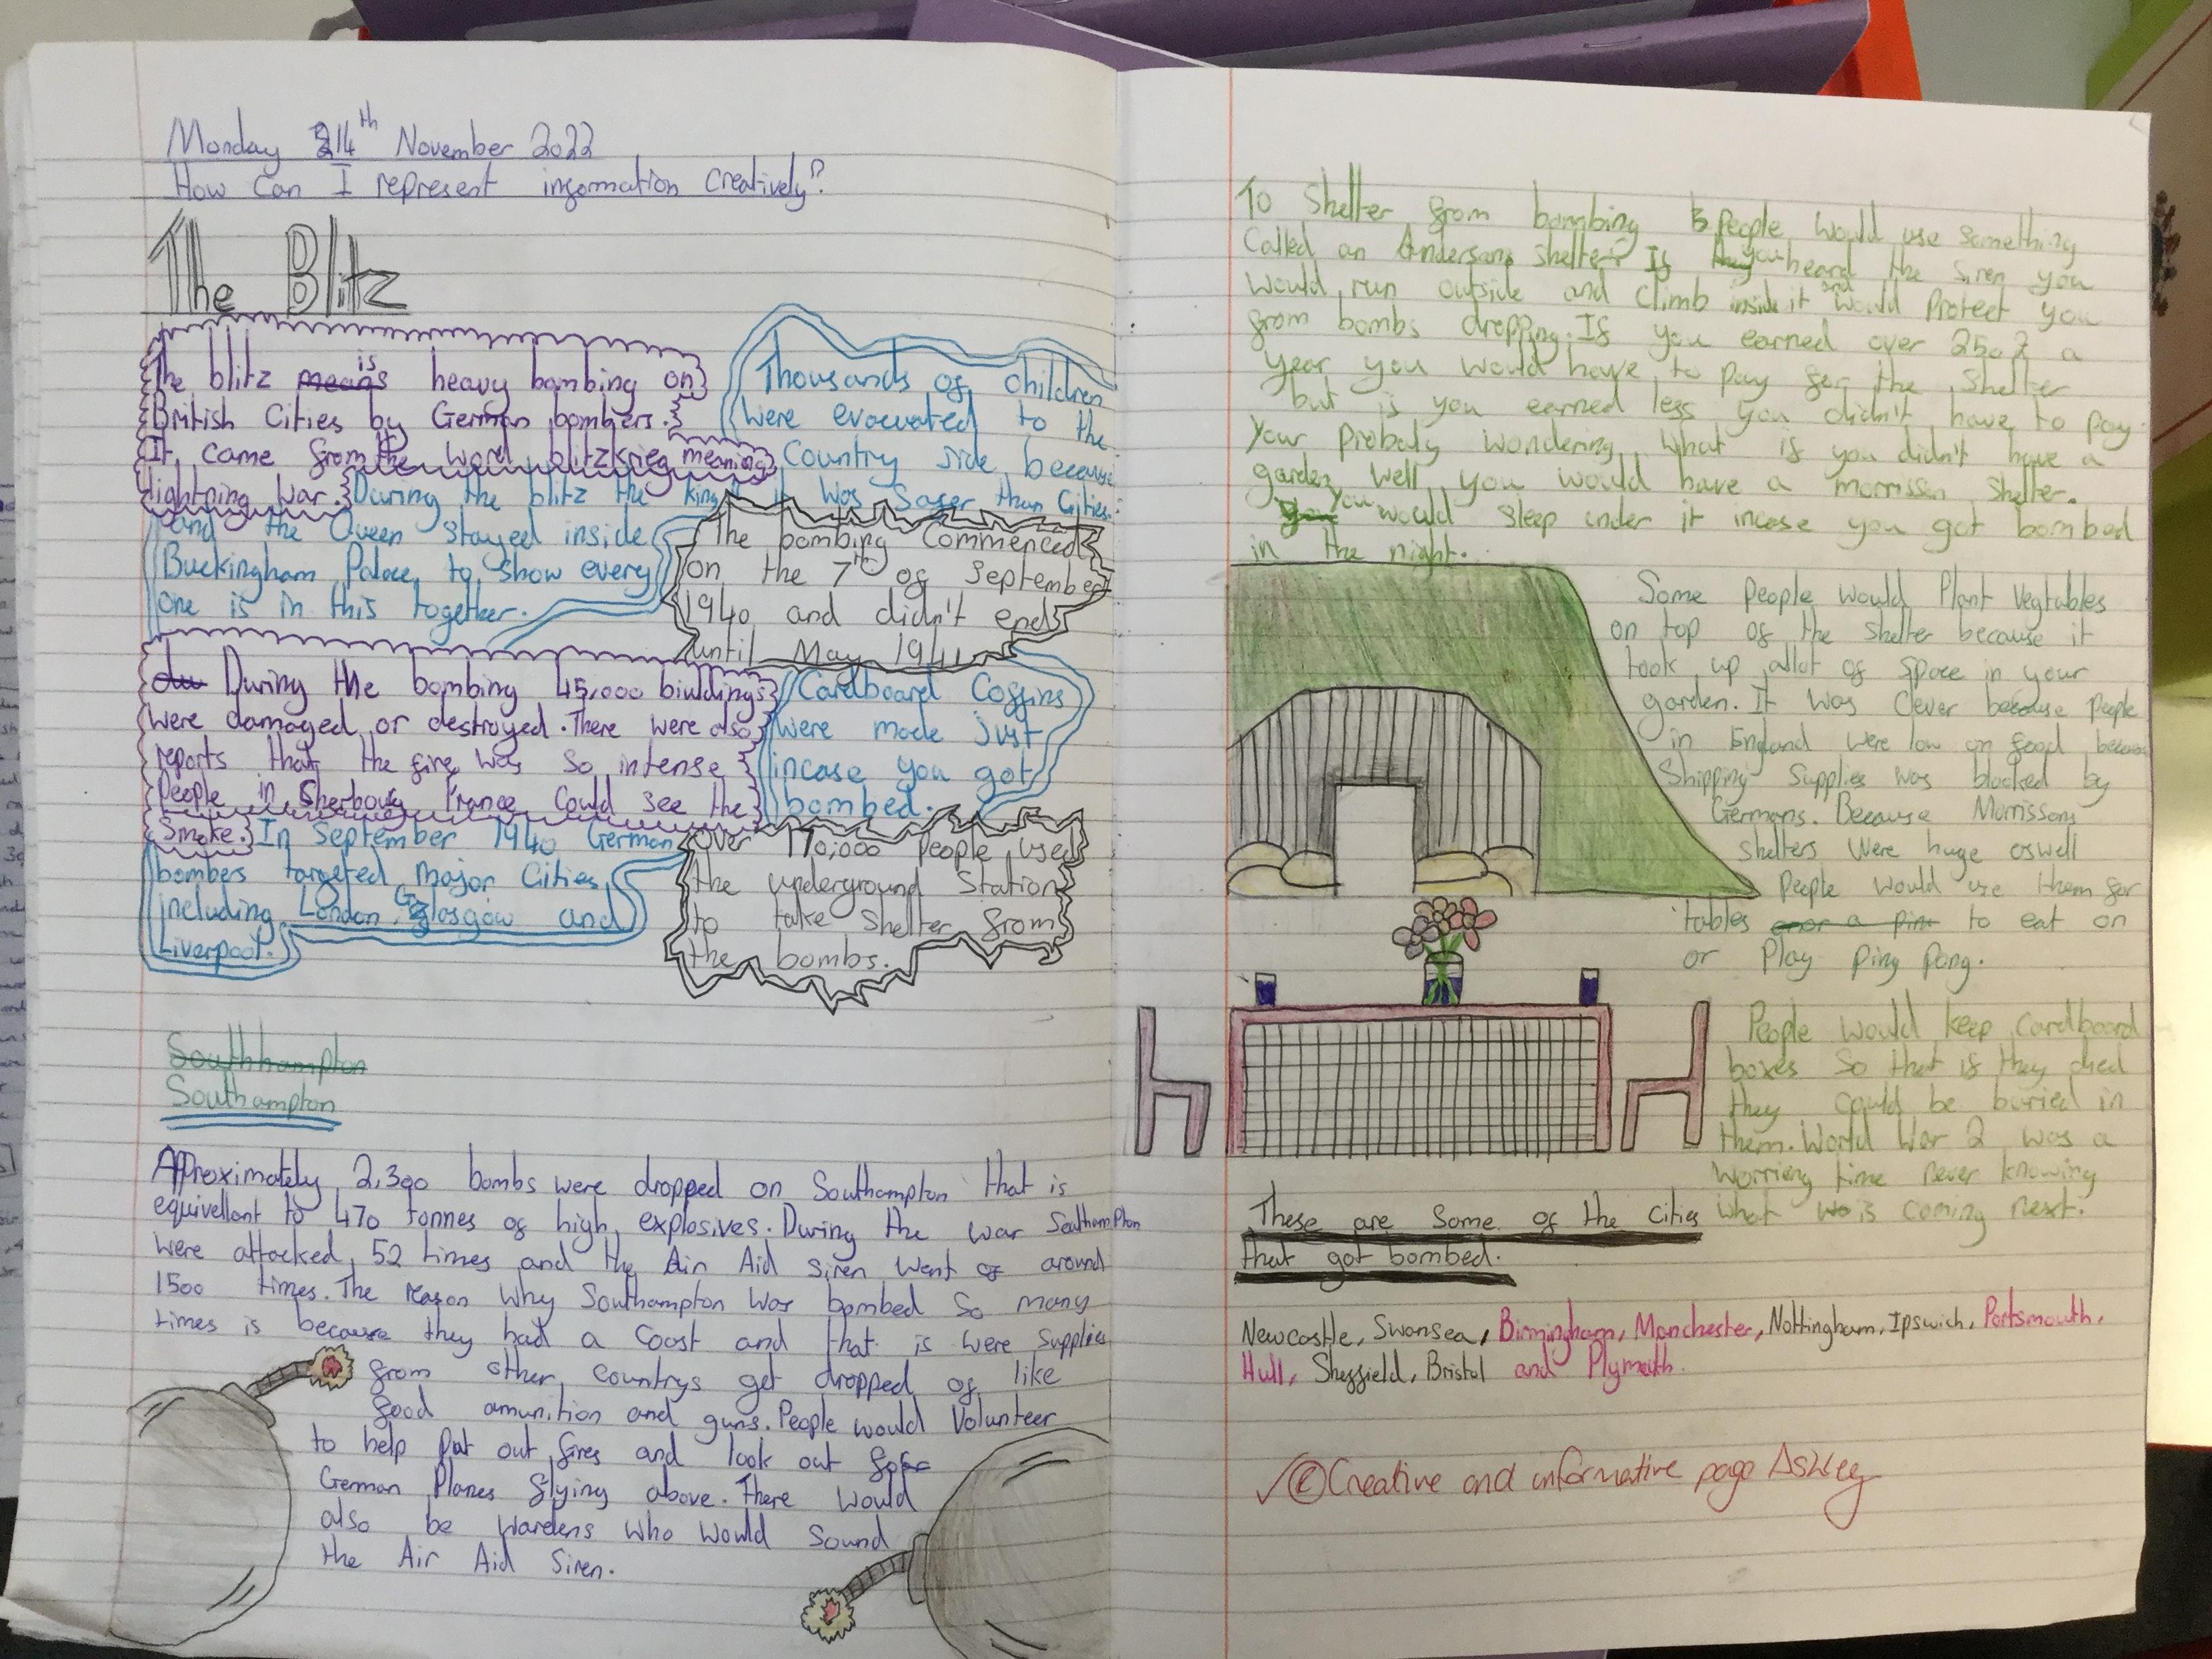 Monday 14th November 2022
How Can I represent information Creatively?
The Blitz
The blitz means is heavy bombing on
British Cities by German bombers.
It came from the word blitzkrieg meaning
lightning war.
Thousands of children
were evacuated to the
Country side because
it was Safer than Cities.
During the blitz the king
and the Queen stayed inside
Buckingham Palace to show every
one is in this together.
The bombing Commenced
on the 7th of September
1940 and didn't end
until May 1941
During the bombing 45,000 biuldings
were damaged or destroyed. There were also
reports that the fire was so intense
People in Cherbourg France Could see the
Smoke.
Cardboard Coffins
were made just
incase you got
bombed.
In September 1940 German
bombers targeted major Cities
including London, Glasgow and
Liverpool.
Over 170,000 people used
the underground Station
to take Shelter from
the bombs.
Southhampton
Southampton
Approximately 2,300 bombs were dropped on Southampton that is
equivellant to 470 tonnes of high explosives. During the war Southampton
were attacked 52 times and the Air Aid siren went of around
1500 times. The reason why Southampton was bombed so many
times is because they had a Coast and that is were supplies
from other countrys get dropped of like
food amunition and guns. People would Volunteer
to help put out fires and look out for
German Planes flying above. There would
also be Wardens who would Sound
the Air Aid Siren.
To Shelter from bombing People would use something
Called an Anderson shelter. If they you heard the siren you
would run outside and climb inside it and would Protect you
from bombs dropping. If you earned over 250£ a
year you would have to pay for the Shelter
but if you earned less you didn't have to pay.
Your probaly wondering what if you didn't have a
garden well you would have a morrisson shelter.
You would sleep under it incase you got bombed
in the night.
Some people would Plant Vegtables
on top of the shelter because it
took up allot of space in your
garden. It was Clever because People
in England were low on food because
Shipping Supplies was blocked by
Germans. Because Morrissons
shelters were huge aswell
People would use them for
tables to eat on
or Play Ping Pong.
People would keep Cardboard
boxes so that if they died
they could be buried in
them. World War 2 was a
worrieng time never knowing
what is coming next.
These are Some of the Cities
that got bombed.
Newcastle, Swansea, Birmingham, Manchester, Nottingham, Ipswich, Portsmouth,
Hull, Sheffield, Bristol and Plymouth.
✓ Creative and informative page Ashley